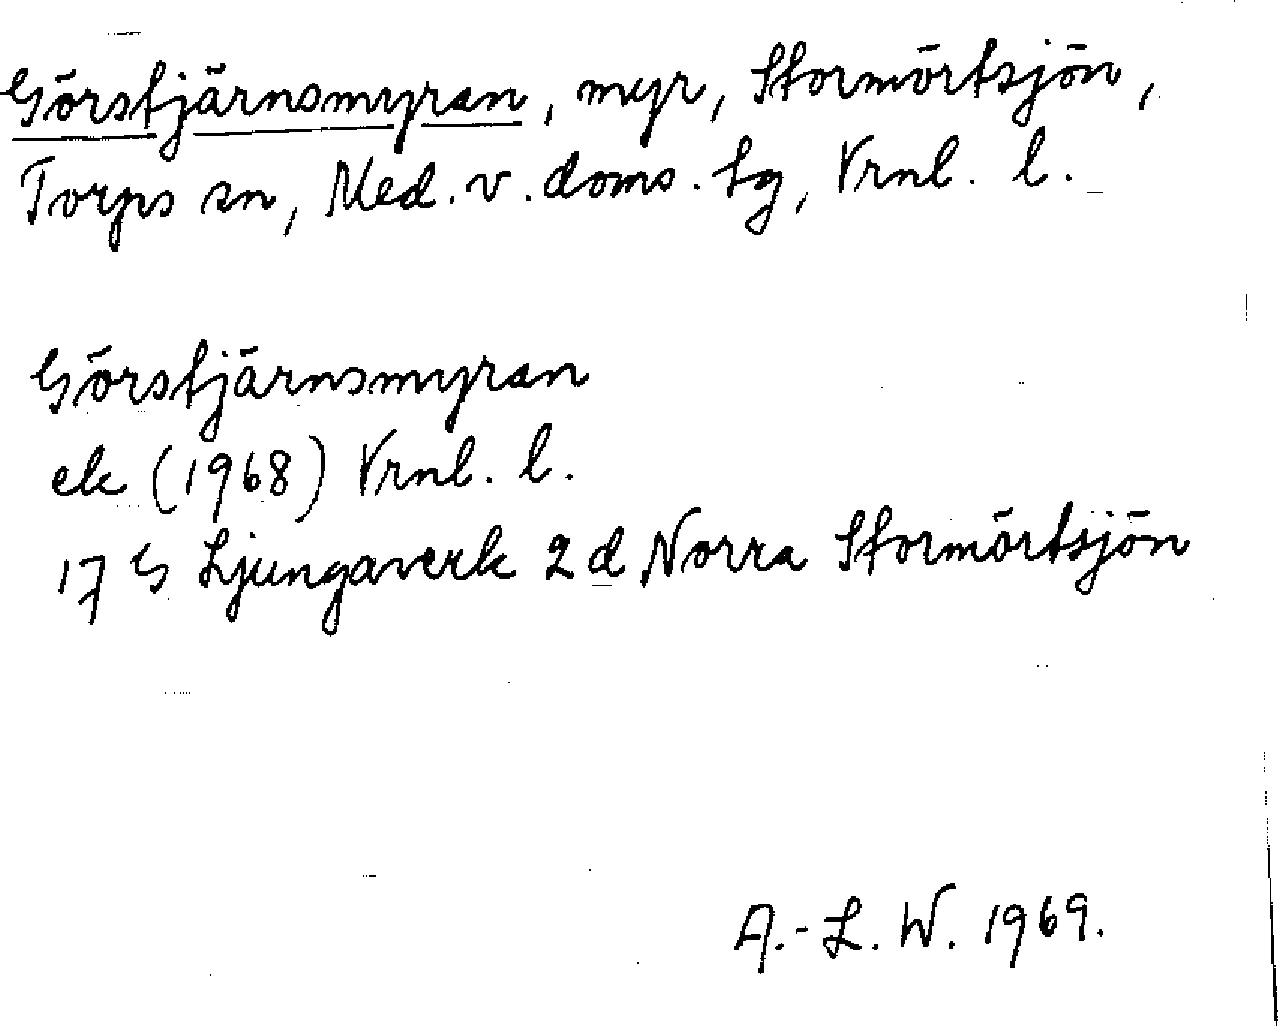 Görstjärnsmyran, myr, Stormörtsjön,
Torps sn, Med. v. doms. tg, Vrnl. l.
Görstjärnsmyran
ek (1968) Vrnl. l.
17 G Ljungaverk 2 d Norra Stormörtsjön
A.-L. W. 1969.